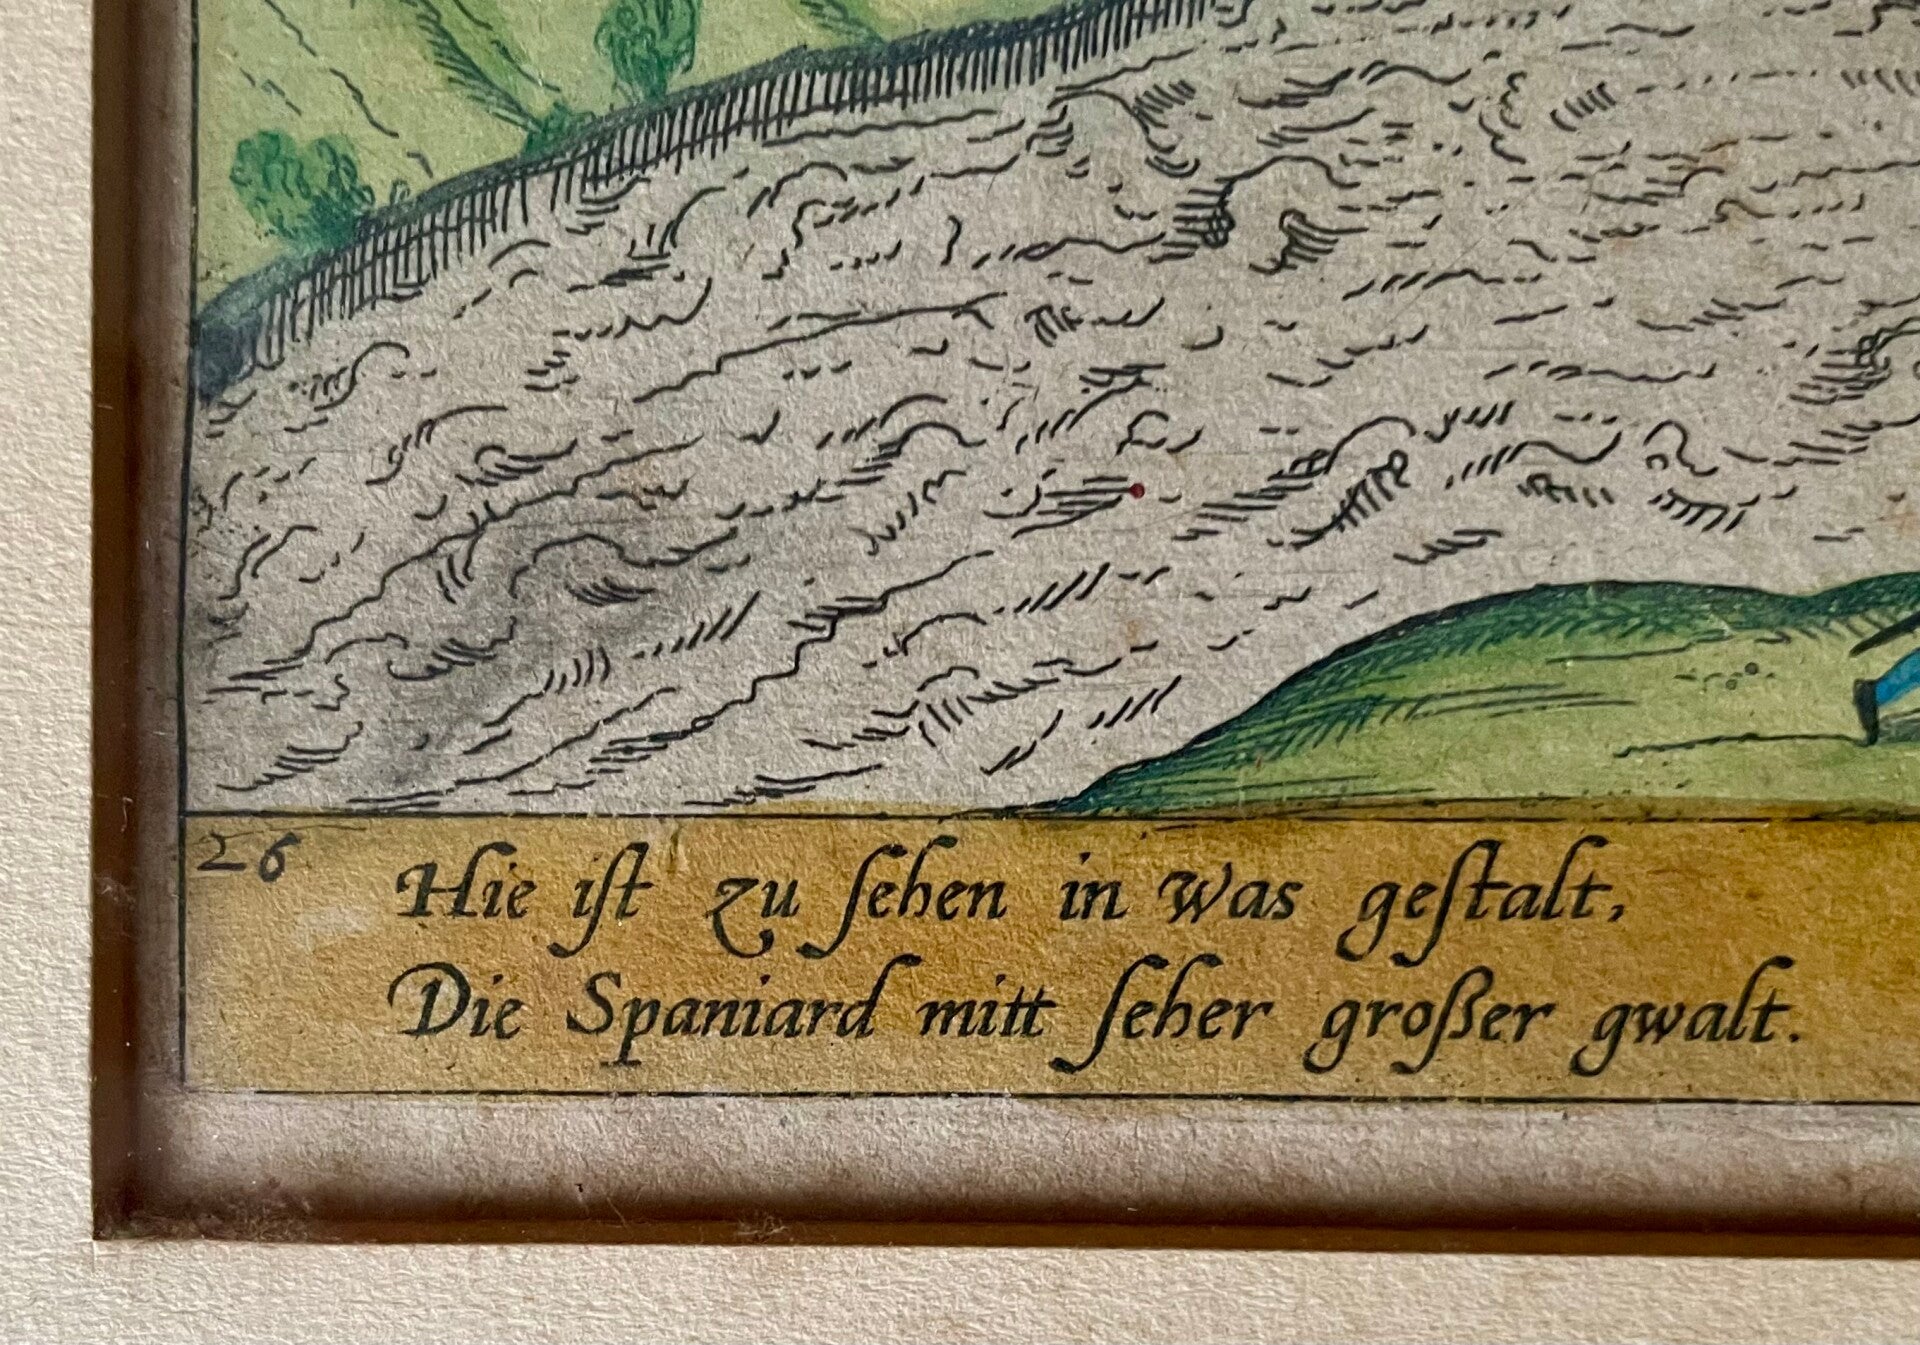 26
Hie iſt zu ſehen in was geſtalt,
Die Spaniard mitt ſeher großer gwalt.